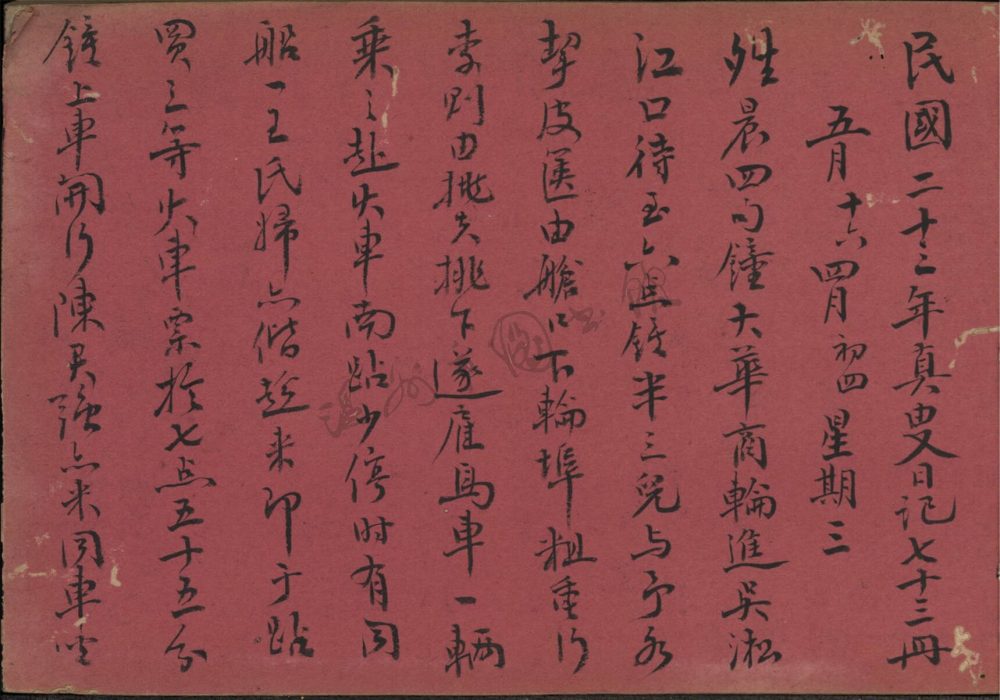 民國二十三年真叟日記七十三冊
五月十六 四月初四 星期三
夝晨四句鐘大華商輪進吳淞
江口待至六点鐘半三兒与予各
挈皮篋由艙口下輪埠粗重行
李則由挑夫挑下遂雇馬車一輛
乘之赴火車南跕少停时有同
船一王氏婦亦偕趕来即于跕
買三等火車票於七点五十五分
鐘上車開行陳君強亦来同車坐
溫州圖書館